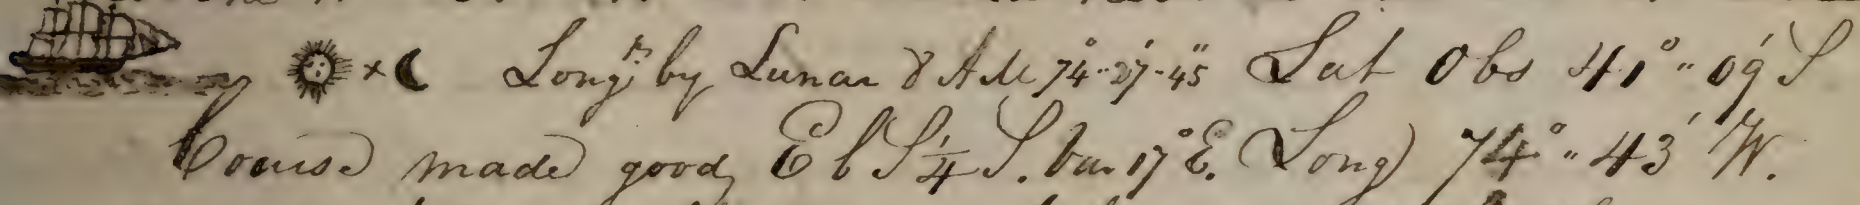 Long by Lunar 8 AM 74°..27'..45" Lat Obs 41°..09' S
Course made good E b S 1/4 S. Var 17° E. Long 74°..43' W.